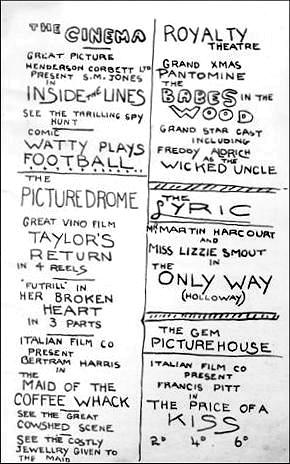 THE CINEMA
GREAT PICTURE
HENDERSON CORBETT LTD
PRESENT S.M. JONES
IN
INSIDE THE LINES
SEE THE THRILLING SPY
HUNT
COMIC
WATTY PLAYS
FOOTBALL
THE
PICTUREDROME
GREAT VINO FILM
TAYLOR'S
RETURN
IN 4 REELS
"FUTRILL" IN
HER BROKEN
HEART
IN 3 PARTS
ITALIAN FILM CO
PRESENT
BERTRAM HARRIS
IN
THE
MAID OF THE
COFFEE WHACK
SEE THE GREAT
COWSHED SCENE
SEE THE COSTLY
JEWELLRY GIVEN TO
THE MAID
ROYALTY
THEATRE
GRAND XMAS
PANTOMINE
THE
BABES IN THE
WOOD
GRAND STAR CAST
INCLUDING
FREDDY ALDRICH
AS THE
WICKED UNCLE
THE
LYRIC
MR MARTIN HARCOURT
AND
MISS LIZZIE SMOUT
IN
THE
ONLY WAY
(HOLLOWAY)
THE GEM
PICTUREHOUSE
ITALIAN FILM CO
PRESENT
FRANCIS PITT
IN
THE PRICE OF A
KISS
2D 4D 6D